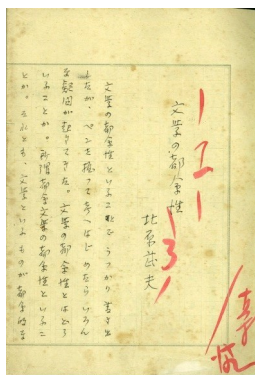 文学の都会性
北原武夫
文学の都会性といふ これで うつかり書き出
したが、ペンを握つて考へはじめたらいろん
な疑問が起きてきた。文学の都会性とはどう
いふことか。所謂都会文学の都会性といふこ
とか。それとも、文学といふものが都会的な